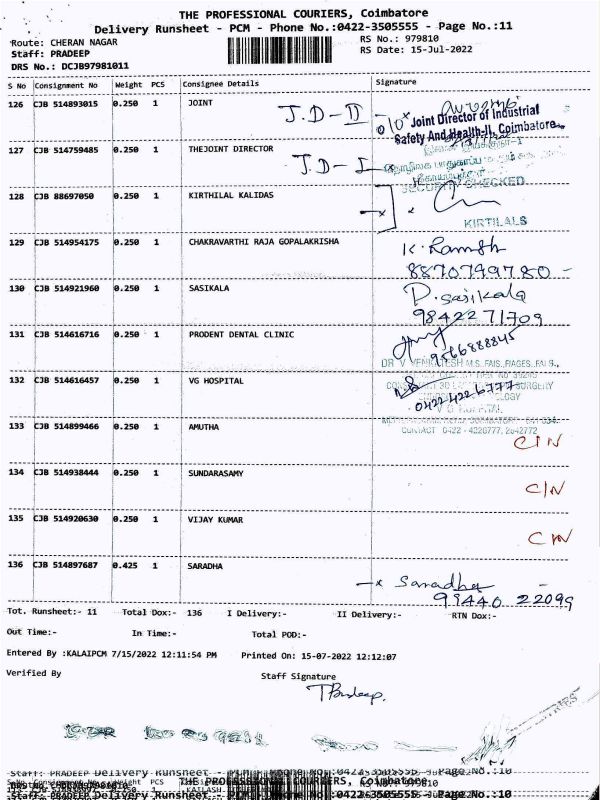 THE PROFESSIONAL COURIERS, Coimbatore
Delivery Runsheet - PCM - Phone No.:0422-3505555 - Page No.:11
Route: CHERAN NAGAR
RS No.: 979810
Staff: PRADEEP
RS Date: 15-Jul-2022
DRS No.: DCJB97981011
S No Consignment No Weight PCS Consignee Details Signature
126 CJB 514893015 0.250 1 JOINT J.D-II
Joint Director of Industrial
Safety And Health-II, Coimbatore
127 CJB 514759485 0.250 1 THEJOINT DIRECTOR J.D-I
SECURITY CHECKED
128 CJB 88697050 0.250 1 KIRTHILAL KALIDAS
KIRTILALS
129 CJB 514954175 0.250 1 CHAKRAVARTHI RAJA GOPALAKRISHA K. Ramsh
8870799780
130 CJB 514921960 0.250 1 SASIKALA D. sasikala
9842271709
131 CJB 514616716 0.250 1 PRODENT DENTAL CLINIC
9566888845
DR V VENKATESH M.S. FAIS.
132 CJB 514616457 0.250 1 VG HOSPITAL
0422 4226777
133 CJB 514899466 0.250 1 AMUTHA
CONTACT 0422 - 4226777, 2642772
C/N
134 CJB 514938444 0.250 1 SUNDARASAMY C/N
135 CJB 514920630 0.250 1 VIJAY KUMAR C/N
136 CJB 514897687 0.425 1 SARADHA Saradha
99440 22099
Tot. Runsheet:- 11 Total Dox:- 136 I Delivery:- II Delivery:- RTN Dox:-
Out Time:- In Time:- Total POD:-
Entered By :KALAIPCM 7/15/2022 12:11:54 PM Printed On: 15-07-2022 12:12:07
Verified By Staff Signature
T Pradeep.
Staff: PRADEEP Delivery Runsheet - PCM - Phone No.:0422-3505555 - Page No.:10
THE PROFESSIONAL COURIERS, Coimbatore
Staff: PRADEEP Delivery Runsheet - PCM - Phone No.:0422-3505555 - Page No.:10